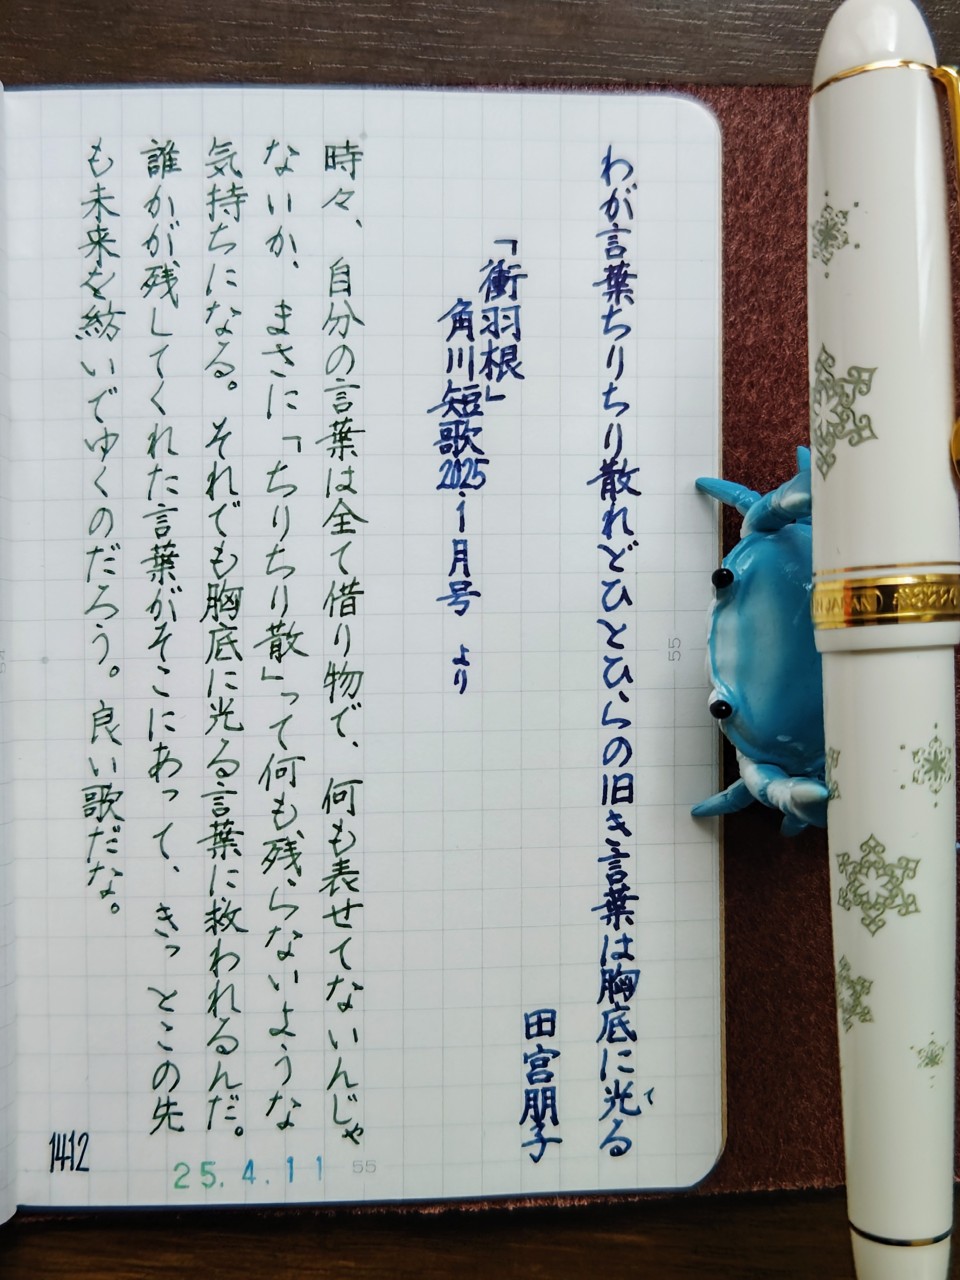 わが言葉ちりちり散れどひとひらの旧き言葉は胸底に光る
て
田宮朋子
「衝羽根」
角川短歌2025.1月号 より
時々、自分の言葉は全て借り物で、何も表せてないんじゃ
ないか、まさに「ちりちり散」って何も残らないような
気持ちになる。それでも胸底に光る言葉に救われるんだ。
誰かが残してくれた言葉がそこにあって、きっとこの先
も未来を紡いでゆくのだろう。良い歌だな。
1412
25.4.11
55
55
JAPAN